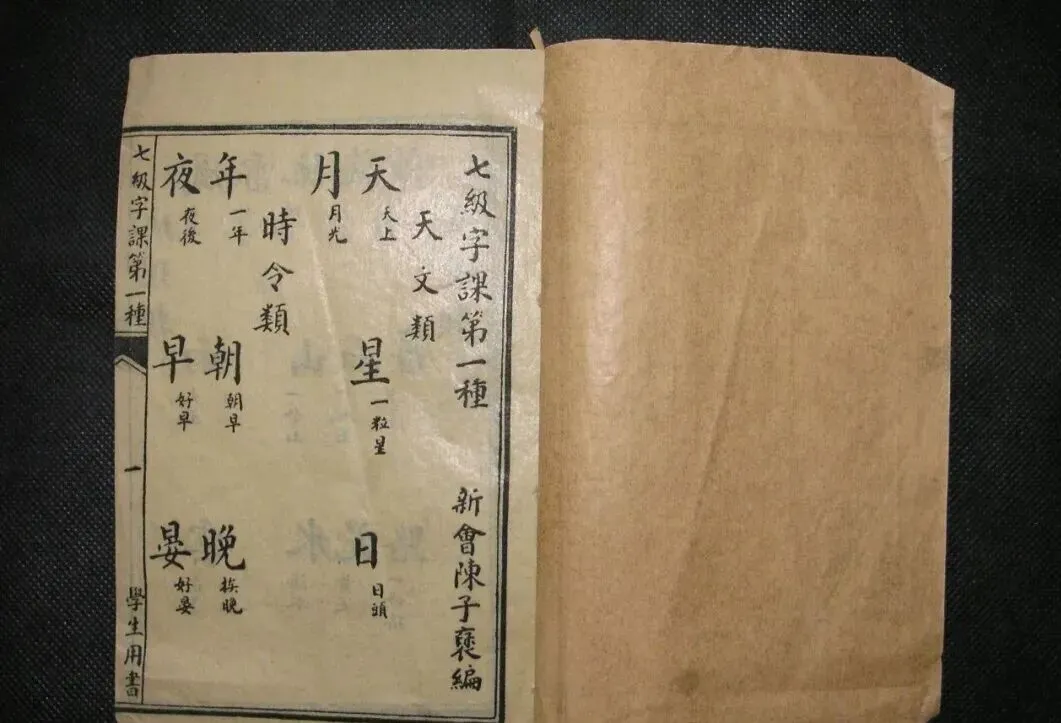 七級字課第一種 新會陳子褒編
天文類
天 天上 星 一粒星 日 日頭
月 月光
時令類
年 一年 朝 朝早 晚 挨晚
夜 夜後 早 好早 晏 好晏
七級字課第一種 一 學生用書